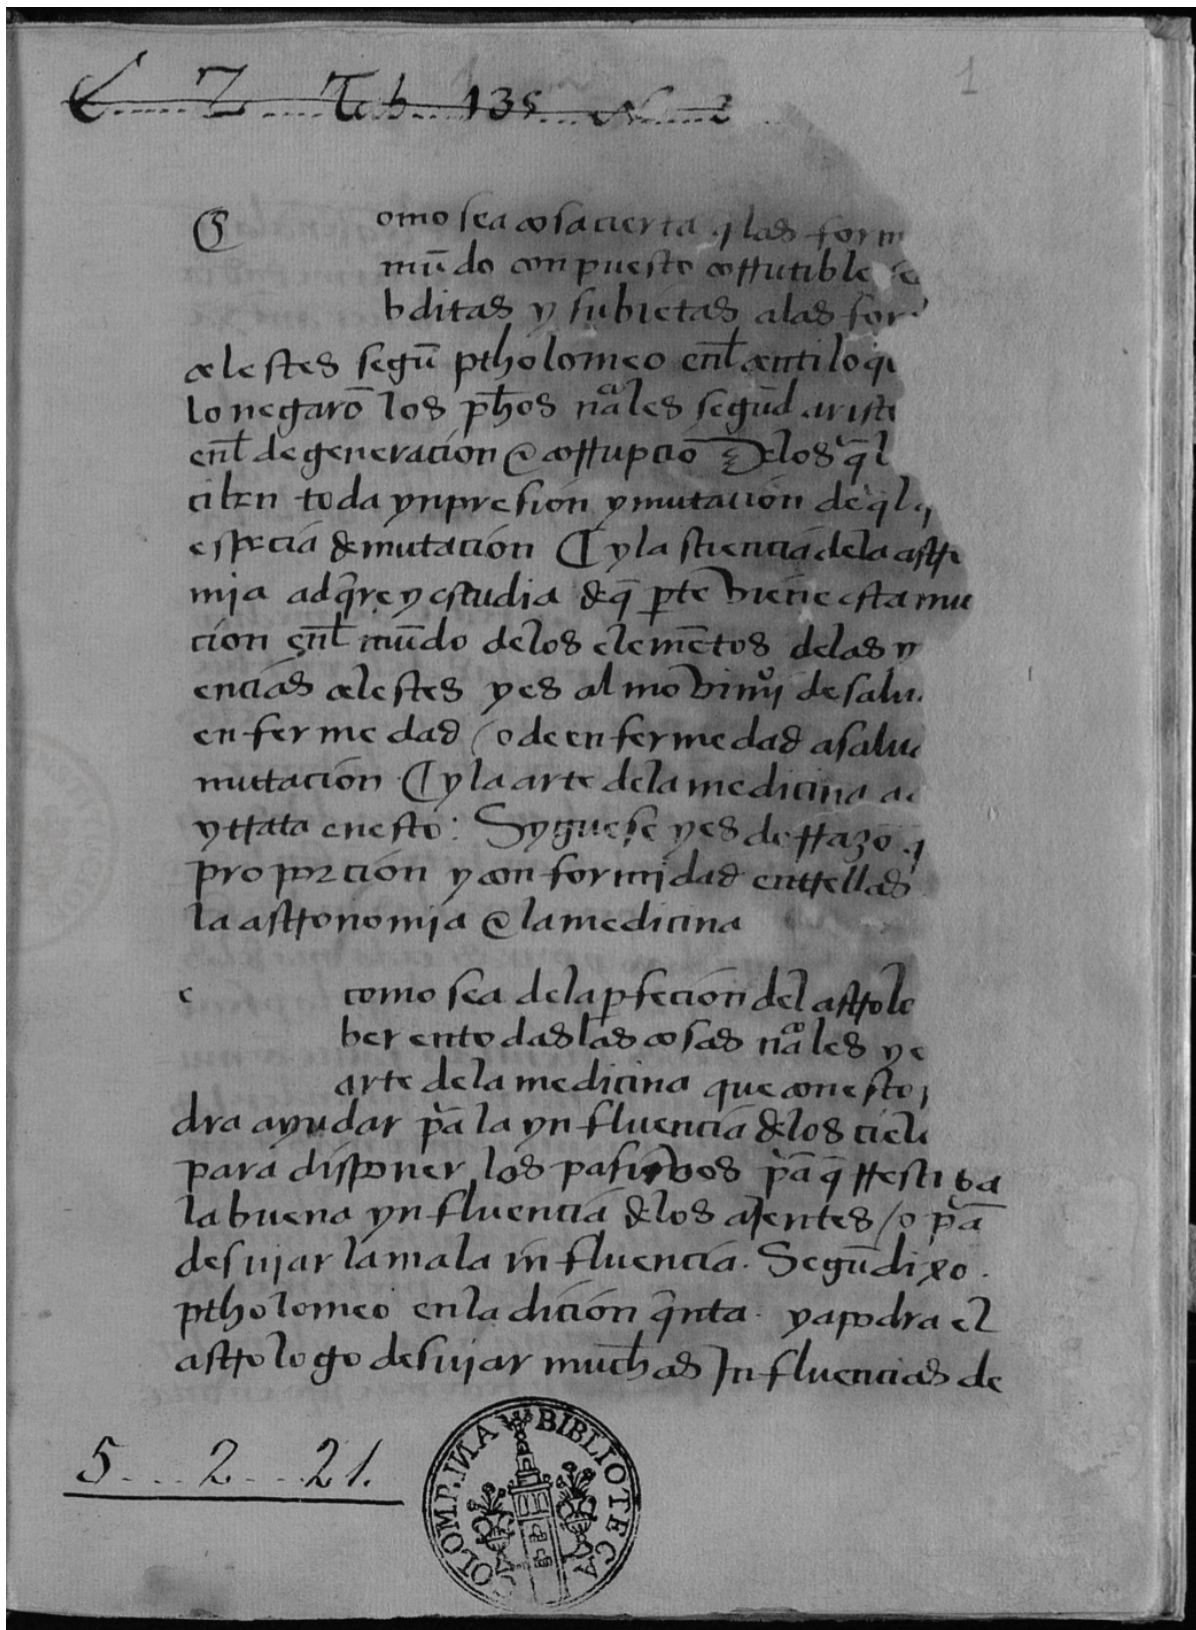 E Z Tab 135 N 2
1
C omo sea cosa cierta q las form
mūdo conpuesto corrutible
bditas y subietas alas for
celestes segū ptholomeo enl centiloqi
lo negarō los phos nales segūd aristo
enl de generacion & corrupcio Delos q̄l
ciben toda ynpresion y mutacion de ql q
especia de mutacion ¶ y la sciencia dela astro
mia adq̄re y estudia de q̄ pte viene esta mu
cion enl mūdo delos elemētos delas y
encias celestes y es al movimio de salu
enfermedad / o de enfermedad a salud
mutacion ¶ y la arte dela medicina
y trata en esto: Syguese y es de rrazō q
proporcion y conformidad entrellas
la astronomia & la medicina
e como sea dela pfecion del astrolo
ber en todas las cosas nales y e
arte dela medicina que con esto
dra ayudar pa la ynfluencia delos ciel
para disponer los pasivos pa q̄ rresciba
la buena ynfluencia delos ajentes / o pa
desviar la mala influencia. Segūd dixo.
ptholomeo en la dicion q̄nta. ya podra el
astrologo desviar muchas Influencias de
5 2 21.
BIBLIOTECA COLOMBINA